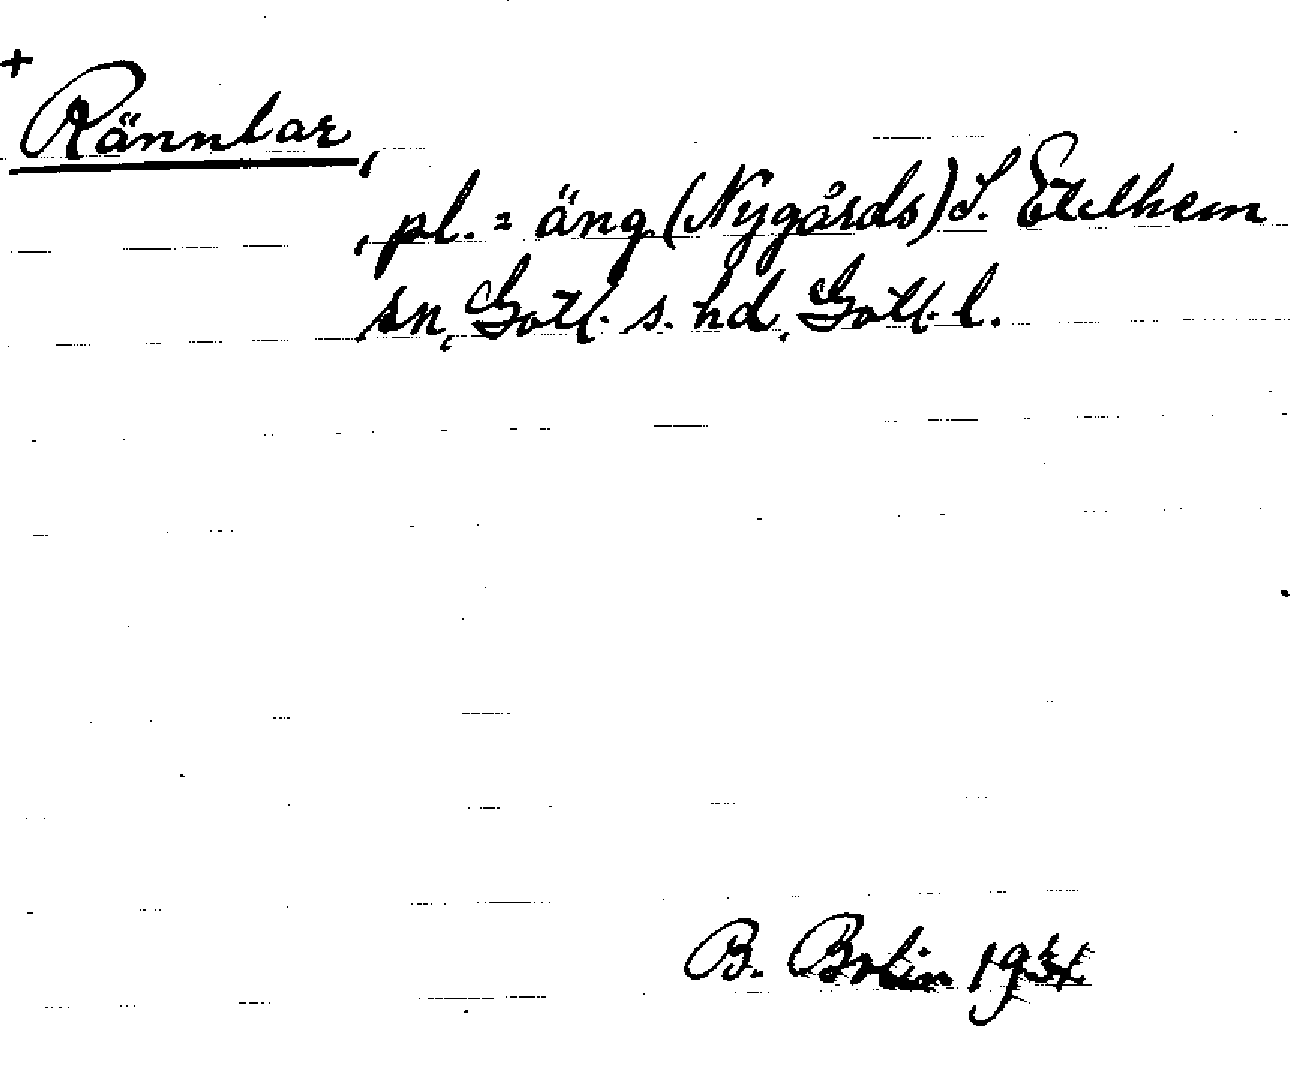 +
Rännlar,
, pl. = äng (Nygårds) S. Etelhem
sn, Gotl. s. hd, Gotl. l.
B. Bolin 1934.